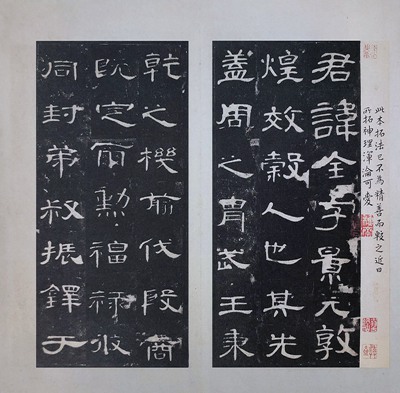 此本拓法已不為精善而較之近日
所拓神理渾淪可愛
君諱全字景完敦
煌效穀人也其先
蓋周之胄武王秉
乾之機翦伐殷商
既定爾勳福祿攸
同封弟叔振鐸于